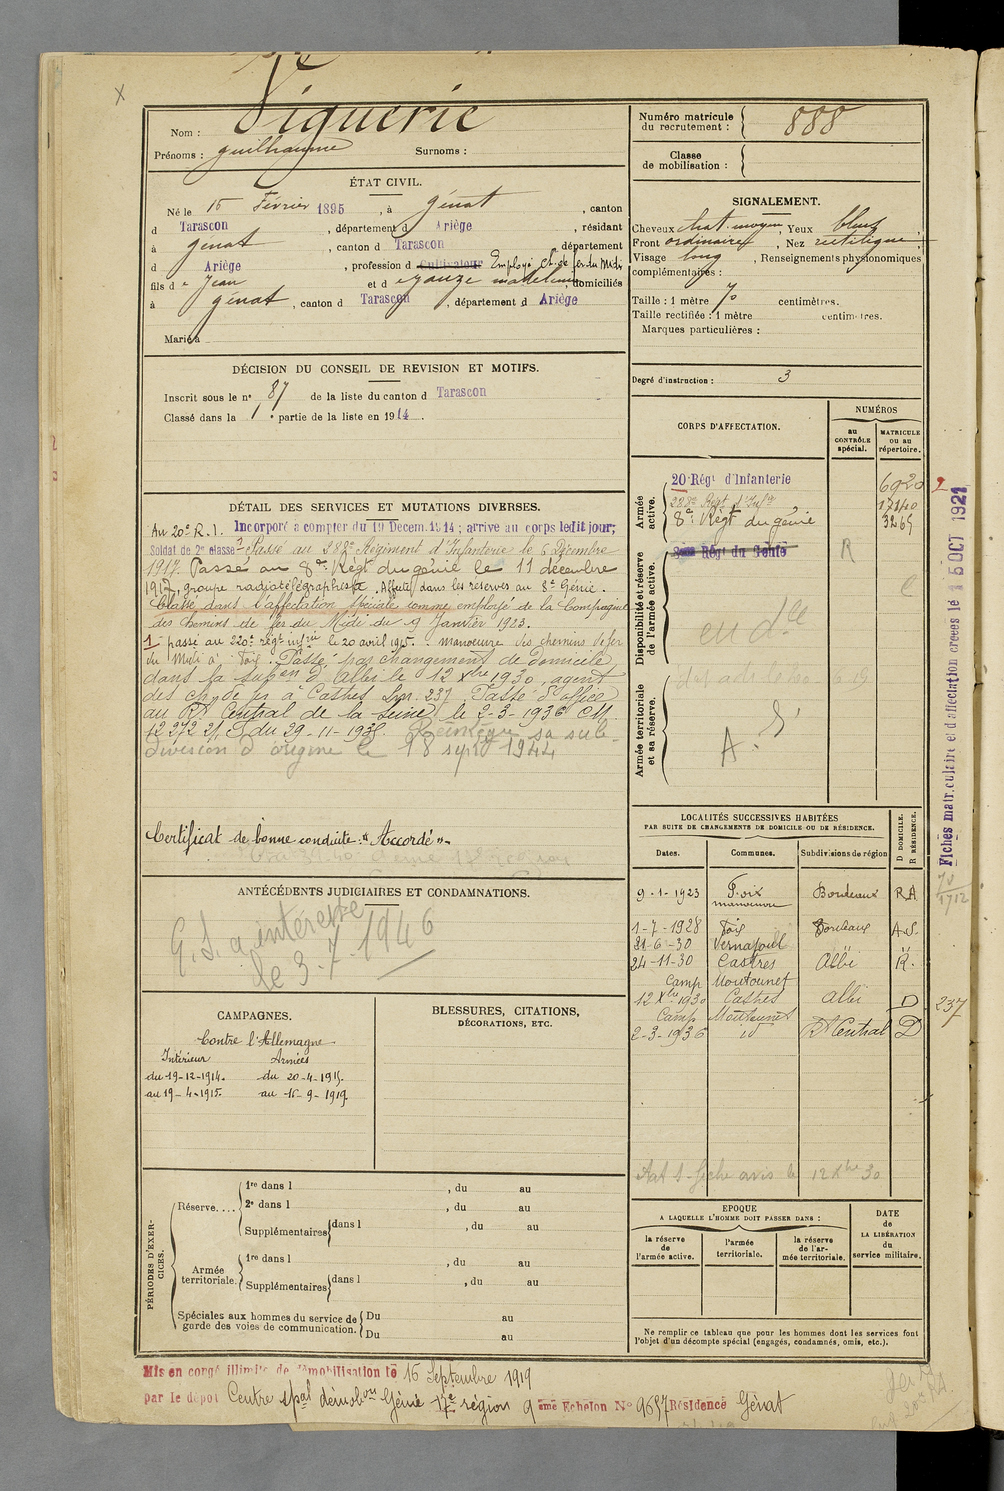 Viguerie
Nom :
Prénoms : guilhaume Surnoms :
Numéro matricule
du recrutement : 888
Classe
de mobilisation :
ÉTAT CIVIL.
Né le 15 Février 1895, à Génat, canton
d Tarascon, département d Ariège, résidant
à génat, canton d Tarascon, département
d Ariège, profession d Cultivateur Employé Ch. de fer du Midi
fils d e Jean et d madeleine, domiciliés
à génat, canton d Tarascon, département d Ariège
Marié à
SIGNALEMENT.
Cheveux chat. moyen, Yeux bleus
Front ordinaire, Nez rectiligne
Visage long, Renseignements physionomiques
complémentaires :
Taille : 1 mètre 70 centimètres.
Taille rectifiée : 1 mètre centimètres.
Marques particulières :
Degré d'instruction : 3
DÉCISION DU CONSEIL DE REVISION ET MOTIFS.
Inscrit sous le n° 87 de la liste du canton d Tarascon
Classé dans la 1e partie de la liste en 1914.
CORPS D'AFFECTATION.
NUMÉROS
au
CONTRÔLE
spécial.
MATRICULE
ou au
répertoire.
Armée
active.
20 Régt d'Infanterie 6920
283e Régt d'Infie
8e Régt du génie 3265
Disponibilité et réserve
de l'armée active.
Régt du Génie
R
Armée territoriale
et sa réserve.
DÉTAIL DES SERVICES ET MUTATIONS DIVERSES.
Au 20e R.I. Incorporé à compter du 19 Décem. 1914 ; arrivé au corps ledit jour;
Soldat de 2e classe Passé au 283e Régiment d'Infanterie le 6 Décembre
1917. Passé au 8e Régt du génie le 11 décembre
1917, groupe radiotélégraphiste. Affecté dans les réserves au 8e Génie.
Classé dans l'affectation spéciale comme employé de la Compagnie
des chemins de fer du Midi du 9 Janvier 1923.
1 passé au 220e régt infrie le 20 avril 1915. Manoeuvre des chemins de fer
du Midi à Foix. Passé par changement de domicile
dans la subon d'Albi le 12 Xbre 1930, agent
des ch. de fer à Castres Lin. 237 Passé d'office
au Rt Central de la Seine le 2-3-1936 CM
12272 2/ S du 29-11-1935. Réintègre sa sub-
division d'origine le 18 sept 1944
Certificat de bonne conduite : "Accordé"
ANTÉCÉDENTS JUDICIAIRES ET CONDAMNATIONS.
G. S. a interessé
le 3-7-1946
CAMPAGNES.
Contre l'Allemagne
Intérieur Armées
du 19-12-1914. du 20-4-1915.
au 19-4-1915. au 15-9-1919.
BLESSURES, CITATIONS,
DÉCORATIONS, ETC.
LOCALITÉS SUCCESSIVES HABITÉES
PAR SUITE DE CHANGEMENTS DE DOMICILE OU DE RÉSIDENCE.
Dates. Communes. Subdivisions de région
D DOMICILE.
R RÉSIDENCE.
9-1-1923 Foix Bordeaux R.A
manoeuvre
1-7-1928 Foix Bordeaux A.S.
21-6-30 Vernajoul
24-11-30 Castres Albi R.
Camp Moutounet
12 Xbre 1930 Castres Albi D 237
Camp Moutounet
2-3-1936 id Rt Central D
12 Xbre 30
Fiches matriculaire et d'affectation créées le 15 OCT 1921
PÉRIODES D'EXER-
CICES.
Réserve....
1re dans l , du au
2e dans l , du au
Supplémentaires dans l , du au
Armée
territoriale.
1re dans l , du au
Supplémentaires dans l , du au
Spéciales aux hommes du service de
garde des voies de communication.
Du au
Du au
EPOQUE
A LAQUELLE L'HOMME DOIT PASSER DANS :
la réserve
de
l'armée active.
l'armée
territoriale.
la réserve
de l'ar-
mée territoriale.
DATE
de
LA LIBÉRATION
du
service militaire.
Ne remplir ce tableau que pour les hommes dont les services font
l'objet d'un décompte spécial (engagés, condamnés, omis, etc.).
Mis en congé illimité de démobilisation le 15 Septembre 1919
par le dépôt Centre spal démobon Génie 17e région 9 ème Echelon N° 9657 Résidence Génat